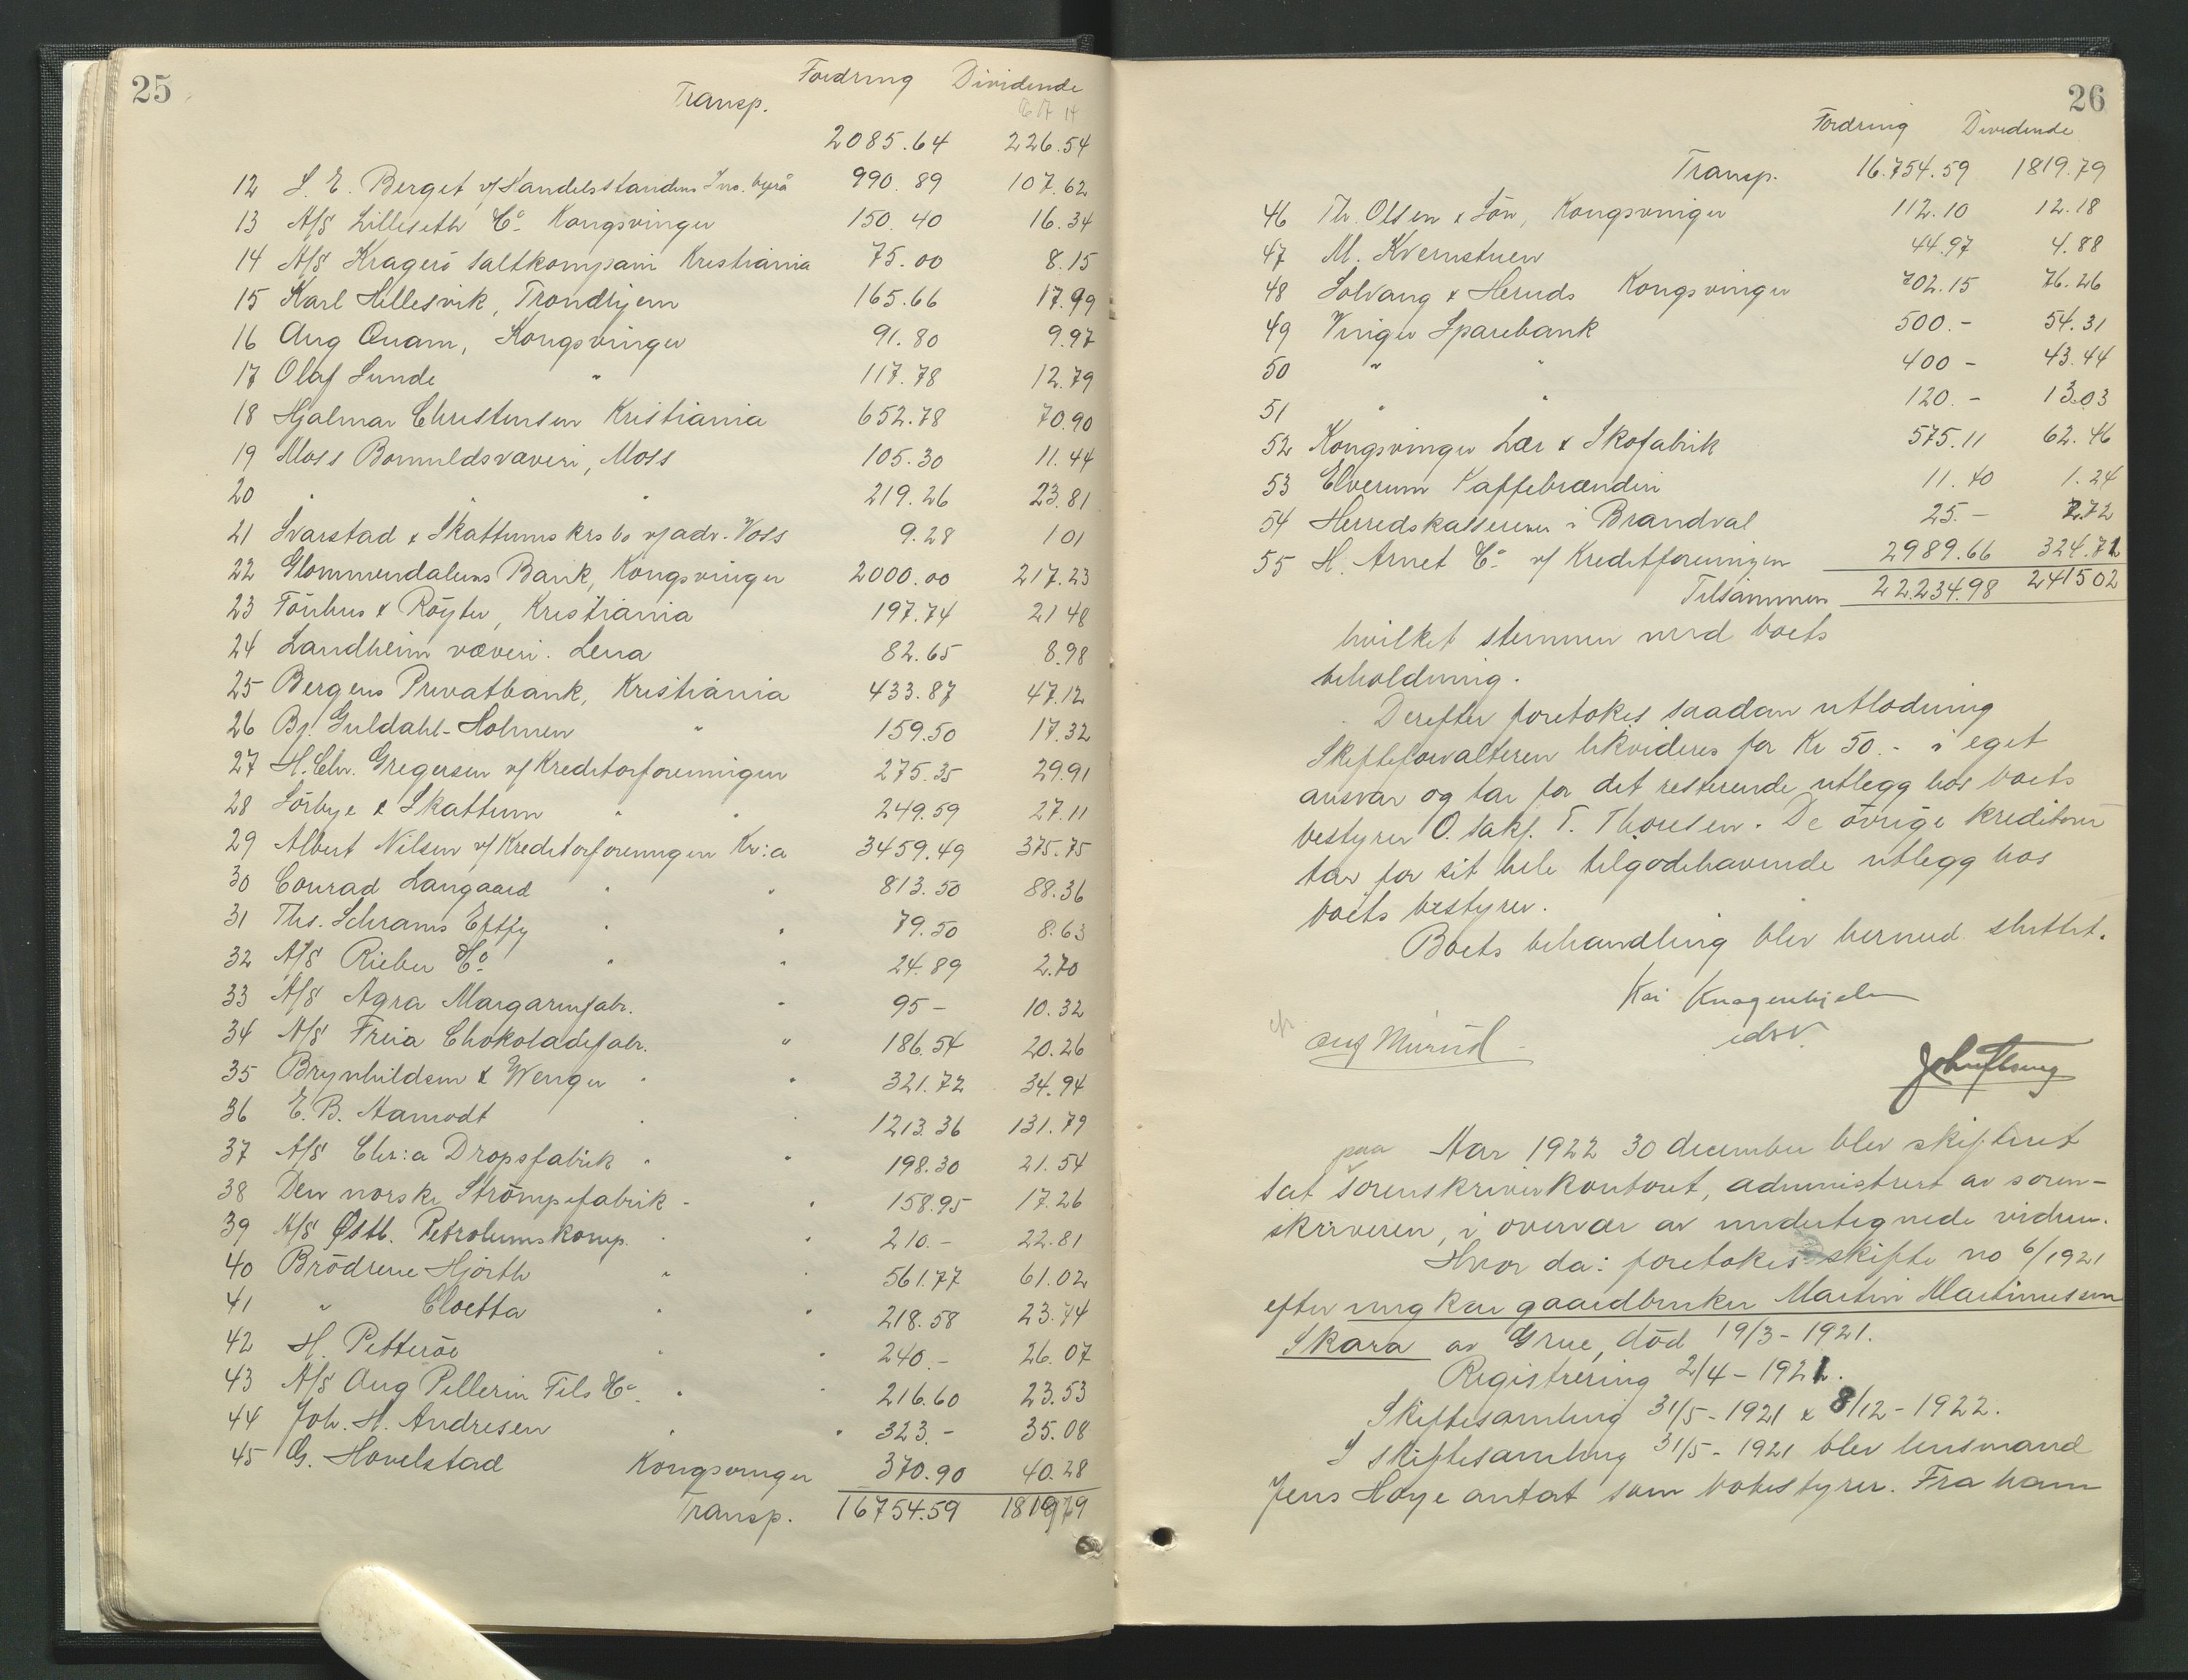 25
Fordring Dividende
Transp.
2085.64 226.54
12 S. E. Berget v/ Handelsstandens Ins. byrå 990.89 107.62
13 A/S Lilleseth & Co. Kongsvinger 150.40 16.34
14 A/S Kragerö Saltkompani Kristiania 75.00 8.15
15 Karl Hellesvik, Trondhjem 165.66 17.99
16 Aug Quam, Kongsvinger 91.80 9.97
17 Olaf Lunde " 117.78 12.79
18 Hjalmar Christensen Kristiania 652.78 70.90
19 Moss Bomuldsvæveri, Moss 105.30 11.44
20 " " " 219.26 23.81
21 Svarstad & Skattums krs bo v/ adv. Voss 9.28 1 01
22 Glommendalens Bank, Kongsvinger 2000.00 217.23
23 Tönhus & Röyter, Kristiania 197.74 21 48
24 Landheim væveri. Lena 82.65 8.98
25 Bergens Privatbank, Kristiania 433.87 47.12
26 Bj. Guldahl-Holmen " 159.50 17.32
27 H. Chr. Gregersen v/ Kreditorforeningen 275.35 29.91
28 Sörbye & Skattum " " 249.59 27.11
29 Albert Nilsen v/ Kreditorforeningen Kr:a 3459.49 375.75
30 Conrad Langaard " " 813.50 88.36
31 Ths. Schrams Eftfg " " 79.50 8.63
32 A/S Rieber & Co " " 24.89 2.70
33 A/S Agra Margarinfabr. " 95 – 10.32
34 A/S Freia Chokoladefabr. " 186.54 20.26
35 Brynhildsen & Wenger " " 321.72 34.94
36 E. B. Aamodt " " 1213.36 131.79
37 A/S Chr:a Dropsfabrik " " 198.30 21.54
38 Den norske Strömpefabrik " " 158.95 17.26
39 A/S Østl. Petroleumskomp. " " 210.– 22.81
40 Brödrene Hjorth " " 561.77 61.02
41 " Cloetta " " 218.58 23.74
42 H. Petteröe " " 240.– 26.07
43 A/S Aug Pellerin Fils & Co. " " 216.60 23.53
44 Joh. H. Andresen " " 323.– 35.08
45 G. Hovelstad Kongsvinger 370.90 40.28
Transp. 16754.59 1819.79
26
Fordring Dividende
Transp. 16.754.59 1819.79
46 Th. Olsen & Sön, Kongsvinger 112.10 12.18
47 M. Kvernstuen 44.97 4.88
48 Solvang & Heruds Kongsvinger 702.15 76.26
49 Vinger Sparebank 500.– 54.31
50 " " 400 – 43.44
51 " " 120.– 13.03
52 Kongsvinger Lær & Skofabrik 575.11 62.46
53 Elverum Kaffebrænderi 11.40 1.24
54 Herredskassereren i Brandval 25.– 2.72
55 H. Arnet & Co. v/ Kreditforeningen 2989.66 324.71
Tilsammen 22.234.98 2415 02
hvilket stemmer med boets
beholdning.
Derefter foretokes saadan utlodning
Skifteforvalteren likvideres for Kr 50.– i eget
ansvar og tar for det resterende utlegg hos boets
bestyrer O. sakf. T. Thoresen. De övrige kreditorer
tar for sit hele tilgodehavende utlegg hos
boets bestyrer.
Boets behandling blev hermed sluttet.
Kai Knagenhjelm
edsv.
Aug Murud
paa Aar 1922 30 december blev skifteret
sat sorenskriverkontoret, administrert av soren-
skriveren, i overvær av undertegnede vidner.
Hvor da: foretokes skifte no 6/1921
efter ungkar gaardbruker Martin Martinussen
Skara av Grue, död 19/3 – 1921.
Registrering 2/4 – 1921.
Skiftesamling 31/5 - 1921 & 8/12 – 1922.
I skiftesamling 31/5 - 1921 blev lensmand
Jens Hoye antat som bobestyrer. Fra ham